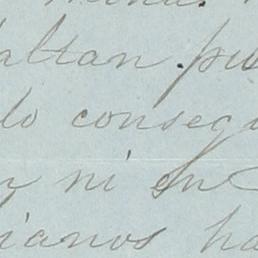 altan pu
do conseg
ni en
ianos ha